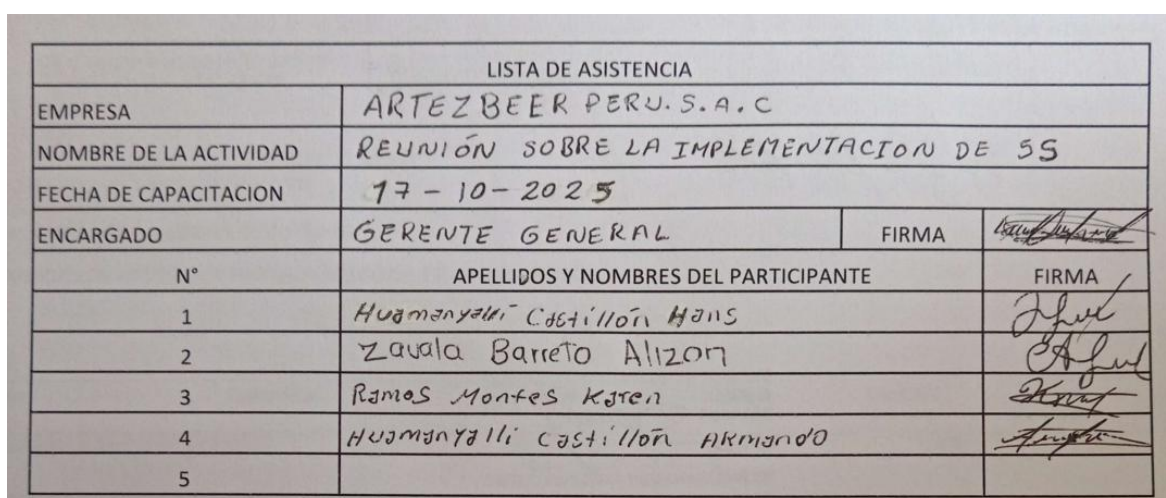 LISTA DE ASISTENCIA
EMPRESA ARTEZBEER PERU.S.A.C
NOMBRE DE LA ACTIVIDAD REUNIÓN SOBRE LA IMPLEMENTACION DE 5S
FECHA DE CAPACITACION 17-10-2025
ENCARGADO GERENTE GENERAL FIRMA
N° APELLIDOS Y NOMBRES DEL PARTICIPANTE FIRMA
1 Huamanyalli Castillón Hans
2 Zavala Barreto Alizon
3 Ramos Montes Karen
4 Huamanyalli Castillón Armando
5